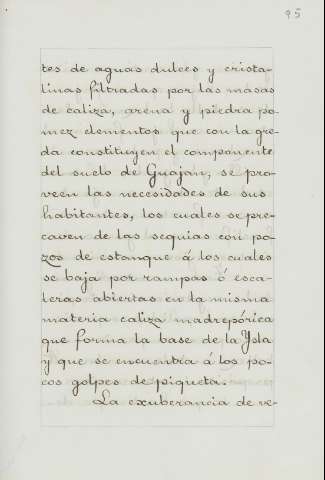 95
tes de aguas dulces y crista-
linas filtradas por las masas
de caliza, arena y piedra po-
mez elementos que con la gre-
da constituyen el componente
del suelo de Guajan, se pro-
veen las necesidades de sus
habitantes, los cuales se pre-
caven de las sequias con po-
zos de estanque á los cuales
se baja por rampas ó esca-
leras abiertas en la misma
materia caliza madrepórica
que forma la base de la Ysla
y que se encuentra á los po-
cos golpes de piqueta.
La exuberancia de ve-